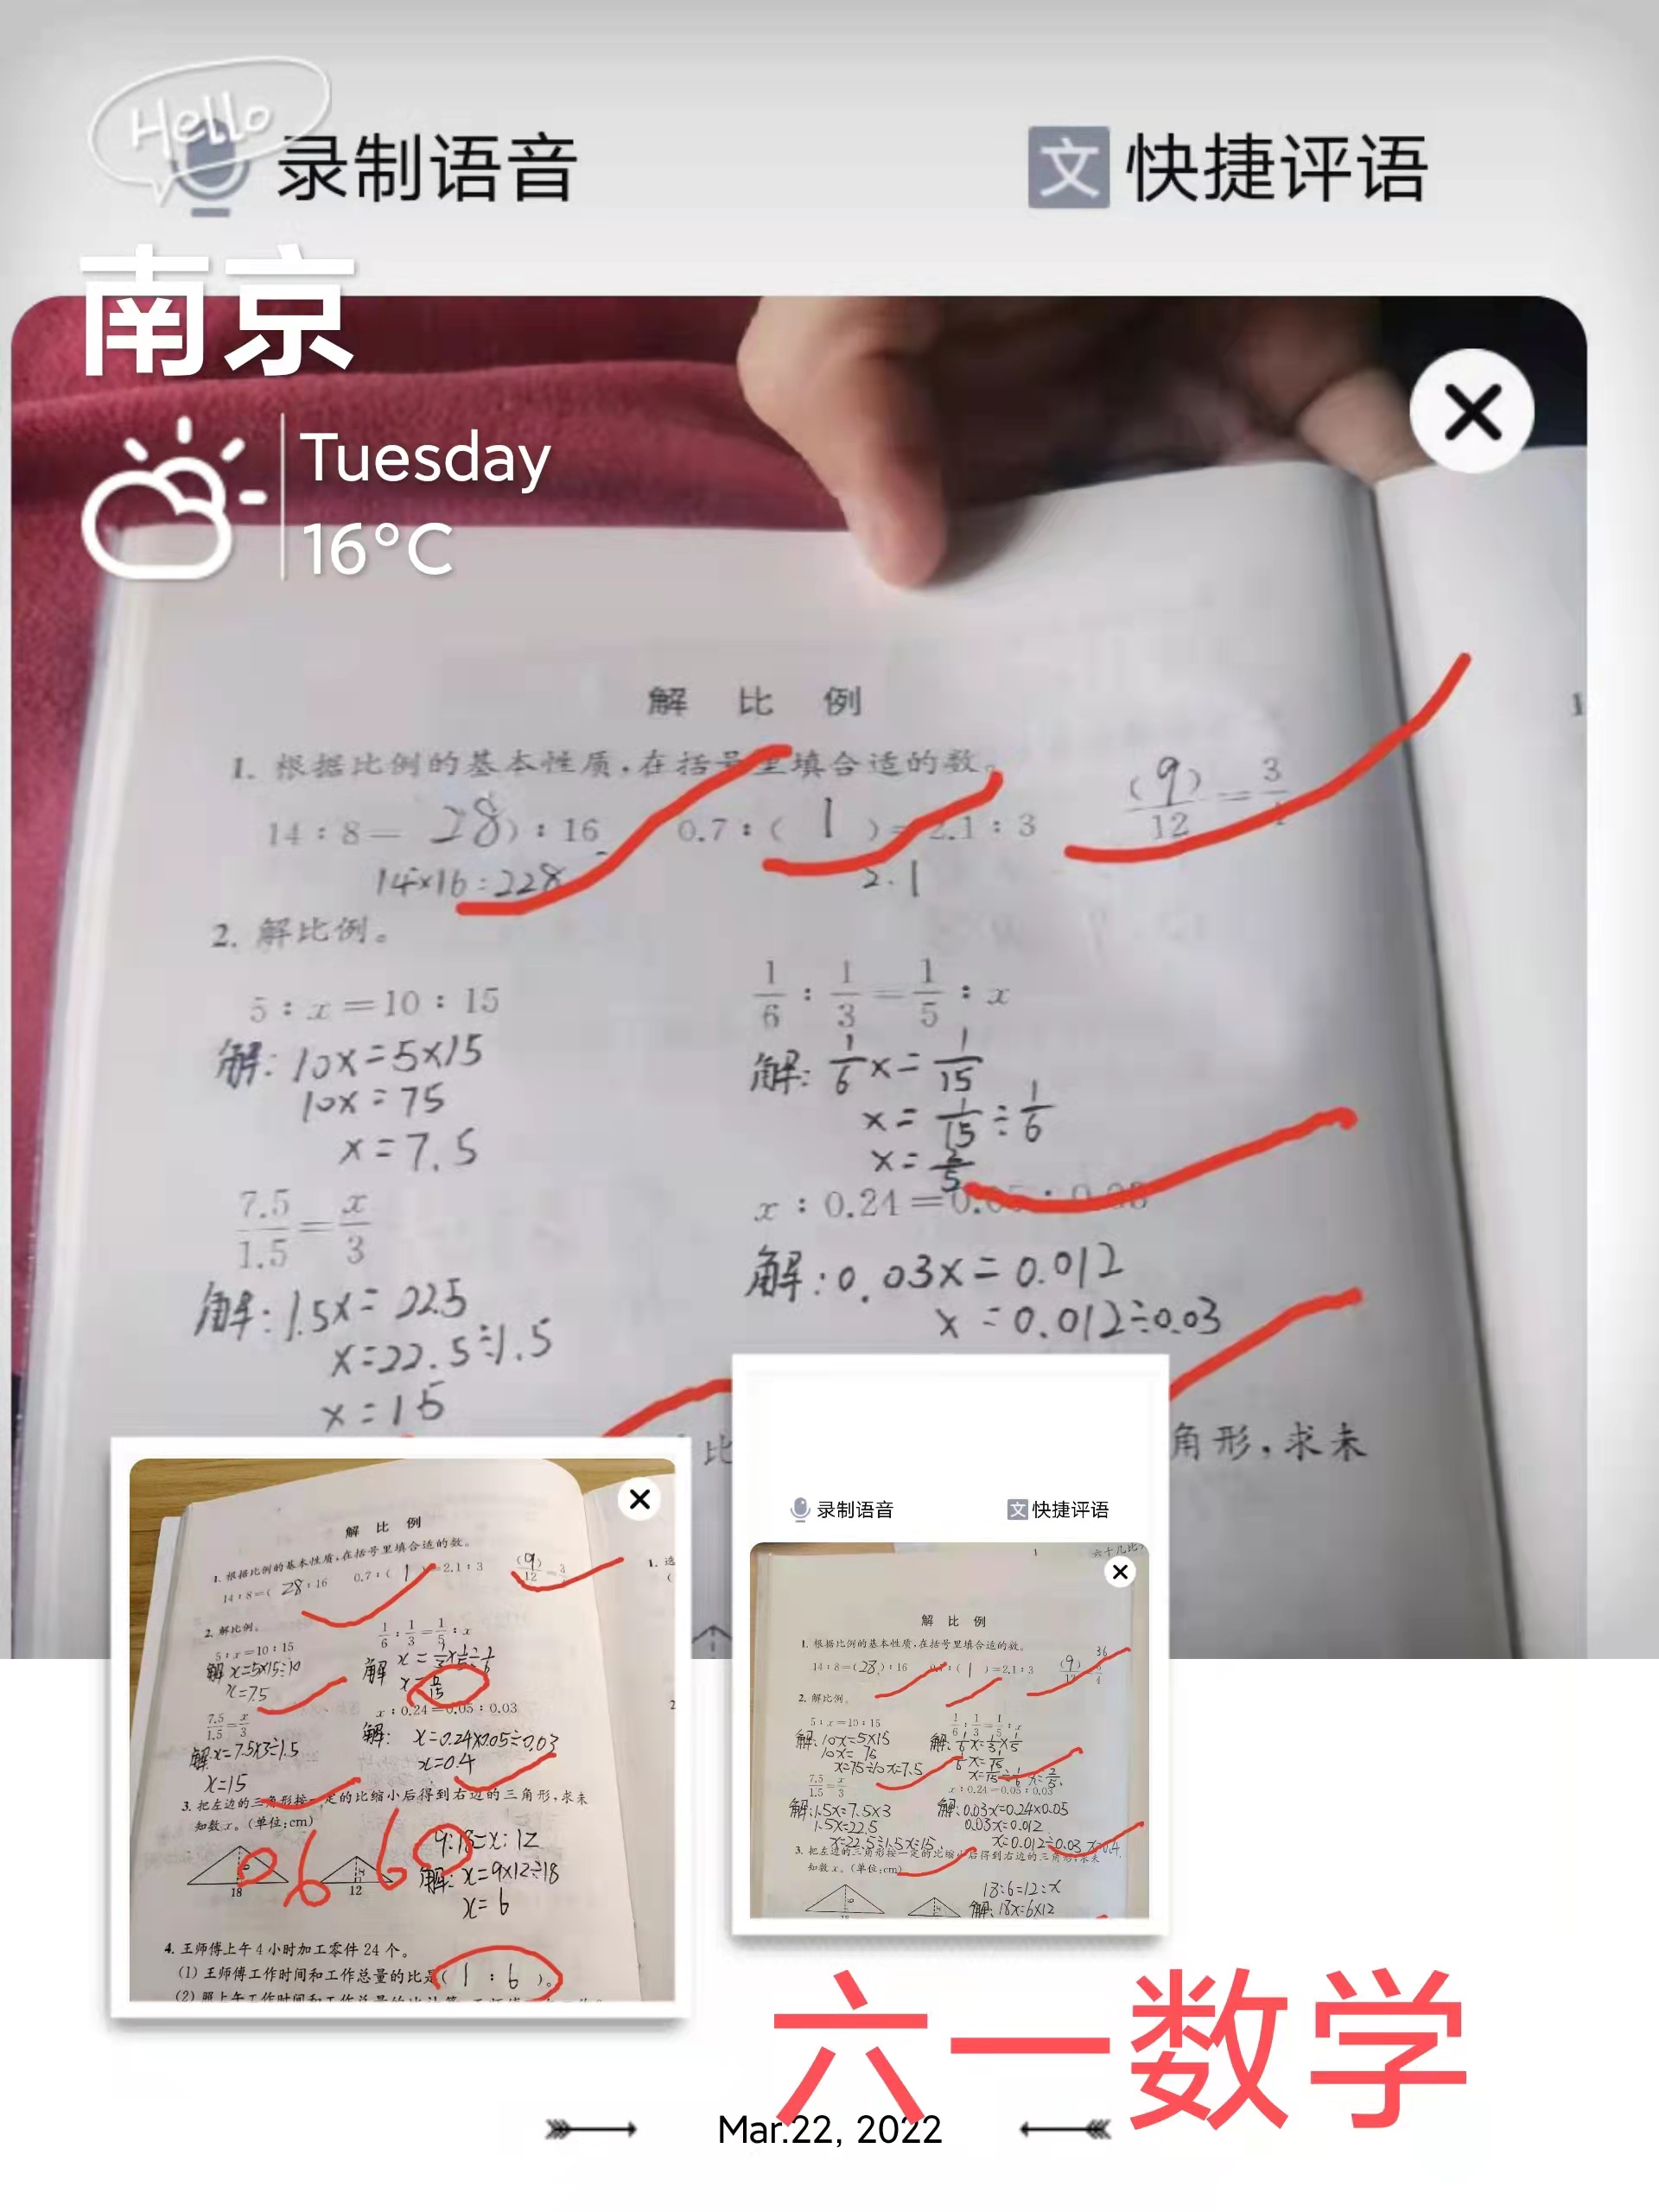 Hello
录制语音 文 快捷评语
南京
Tuesday
16°C
解 比 例
1. 根据比例的基本性质,在括号里填合适的数。
14:8= 28):16 0.7:( 1 )=2.1:3 (9)/12=3/4
14×16=228 2.1
2. 解比例。
5:x=10:15 1/6:1/3=1/5:x
解:10x=5×15 解:1/6x=1/15
10x=75 x=1/15÷1/6
x=7.5 x=2/5
7.5/1.5=x/3 x:0.24=0.05:0.03
解:1.5x=22.5 解:0.03x=0.012
x=22.5÷1.5 x=0.012÷0.03
x=15
比 角形,求未
解 比 例
1. 根据比例的基本性质,在括号里填合适的数。
14:8=( 28:16 0.7:( 1 )=2.1:3 (9)/12=3
2. 解比例。
5:x=10:15 1/6:1/3=1/5:x
解 x=5×15÷10 解
x=7.5
7.5/1.5=x/3 x:0.24=0.05:0.03
解:x=7.5×3÷1.5 解: x=0.24×0.05÷0.03
x=15 x=0.4
3. 把左边的三角形按一定的比缩小后得到右边的三角形,求未
知数 x。(单位:cm)
9:18=x:12
解:x=9×12÷18
x=6
18 12
6 6
4. 王师傅上午 4 小时加工零件 24 个。
(1) 王师傅工作时间和工作总量的比是( 1 : 6 )。
录制语音 文 快捷评语
解 比 例
1. 根据比例的基本性质,在括号里填合适的数。
36
14:8=(28):16 0.7:( 1 )=2.1:3 (9)/12=3/4
2. 解比例。
5:x=10:15 1/6:1/3=1/5:x
解:10x=5×15 解:1/6x=1/3×1/5
10x=75 1/6x=1/15
x=75÷10 x=7.5 x=1/15÷1/6 x=2/5
7.5/1.5=x/3 x:0.24=0.05:0.03
解:1.5x=7.5×3 解:0.03x=0.24×0.05
1.5x=22.5 0.03x=0.012
x=22.5÷1.5 x=15 x=0.012÷0.03 x=0.4
3. 把左边的三角形按一定的比缩小后得到右边的三角形,求未
知数 x。(单位:cm)
18:6=12:x
解:18x=6×12
六一数学
Mar.22, 2022